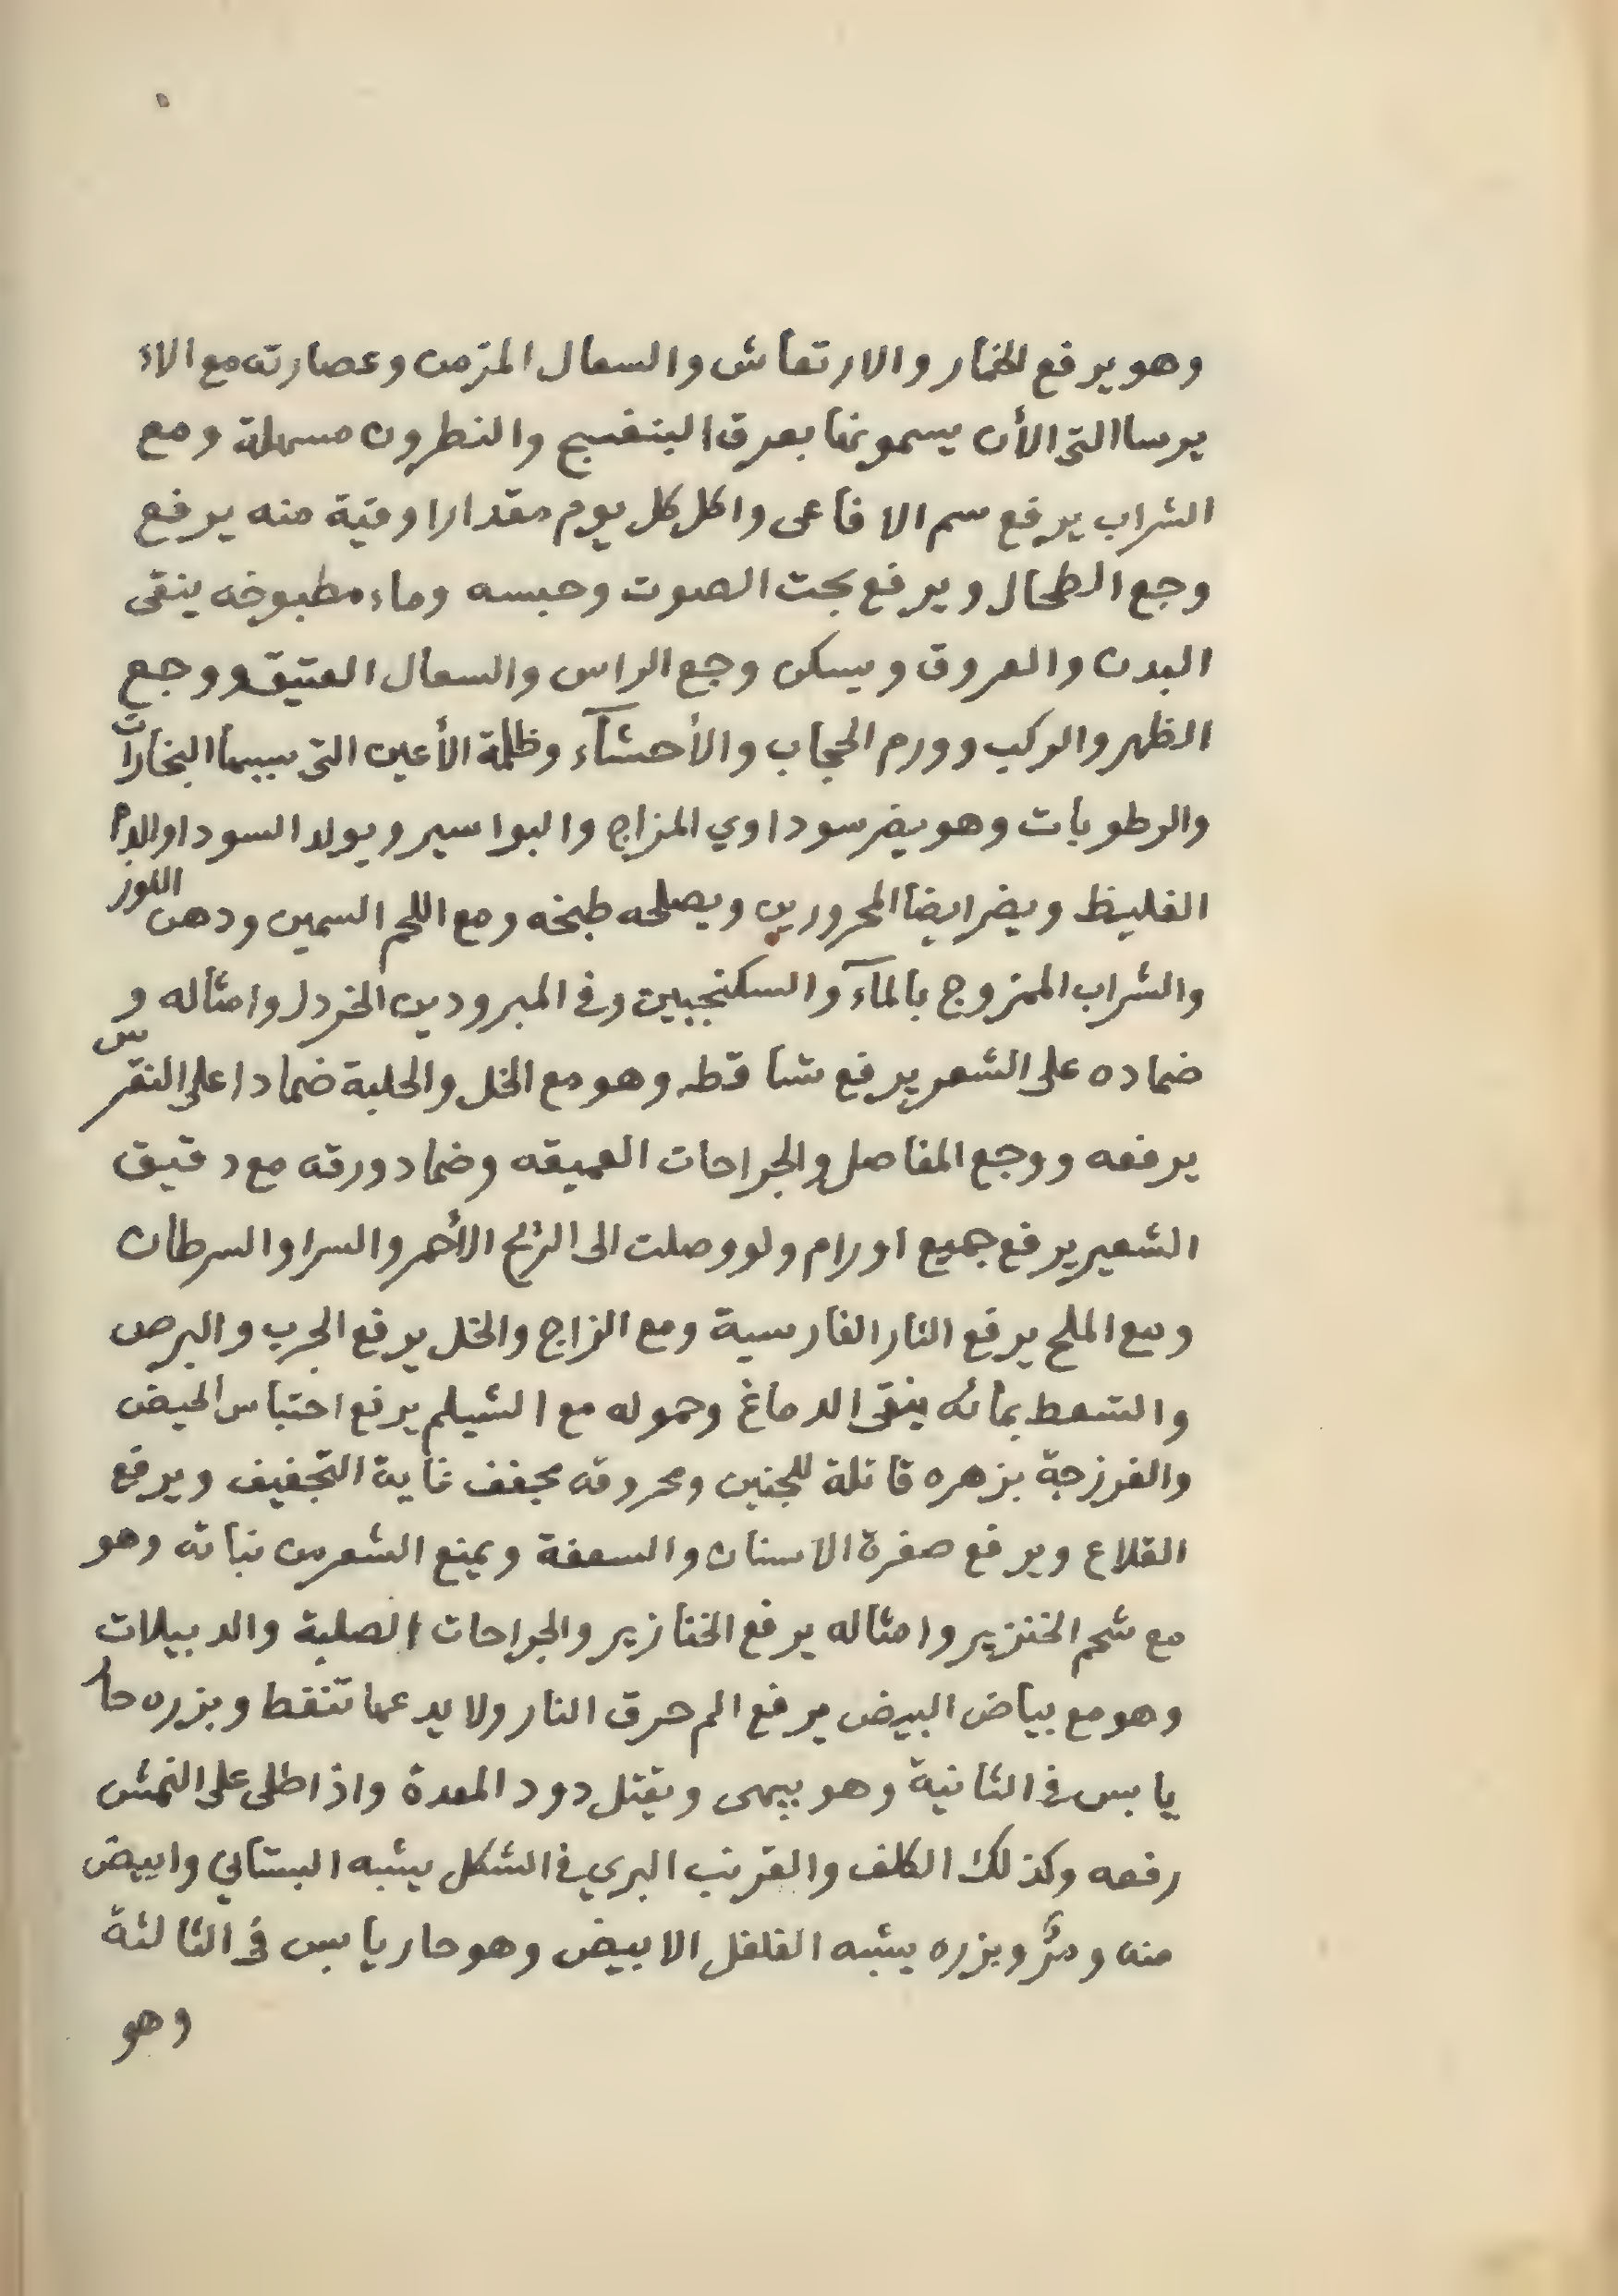 وهو يرفع الخمار والارتعاش والسعال المزمن وعصارته مع الاذ
يرسا التى الأن يسمونها بعرق البنفسج والنطرون مسهلة ومع
الشراب يرفع سم الافاعى واكل كل يوم مقدارا وقية منه يرفع
وجع الطحال ويرفع بحت الصوت وحبسه وماء مطبوخه ينقى
البدن والعروق ويسكن وجع الراس والسعال العتيق ووجع
الظهر والركب وورم الحجاب والأحشآء وظلمة الأعين التى سببها البخارات
والرطوبات وهو يضر سوداوي المزاج والبواسير ويولد السودا والدم
الغليظ ويضر ايضا المحرورين ويصلحه طبخه ومع اللحم السمين ودهن اللوز
والشراب الممزوج بالمآء والسكنجبين وفى المبرودين الخردل وامثاله و
ضماده على الشعر يرفع تساقطه وهو مع الخل والحلبة ضمادا على النقرس
يرفعه ووجع المفاصل والجراحات العميقه وضماد ورقه مع دقيق
الشعير يرفع جميع اورام ولو وصلت الى الريح الأحمر والسرا والسرطان
ومع الملح يرفع النار الفارسية ومع الزاج والخل يرفع الجرب والبرص
والتسعط بمائه ينقى الدماغ وحموله مع الشيلم يرفع احتباس الحيض
والفرزجة بزهره قاتلة للجنين ومحروقه مجفف غاية التجفيف ويرفع
القلاع ويرفع صفرة الاسنان والسعفة ويمنع الشعر من نباته وهو
مع شحم الخنزير وامثاله يرفع الخنازير والجراحات الصلبة والدبيلات
وهو مع بياض البيض يرفع الم حرق النار ولا يدعها تنفط وبزره حار
يابس فى الثانية وهو يبهى ويقتل دود المعدة واذا طلى على النمش
رفعه وكذلك الكلف والقرنب البري فى الشكل يشبه البستاني وابيض
منه ومُرٌّ وبزره يشبه الفلفل الابيض وهو حار يابس فى الثالثة
وهو